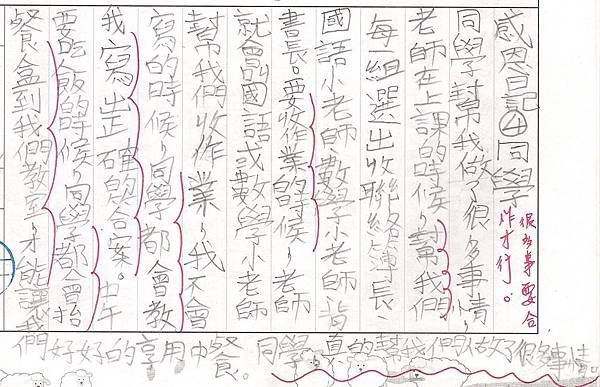 感恩日記④同學
很多事要合
作才行。
同學幫我做了很多事情,
老師在上課的時候,幫我們
每一組選出收聯絡簿長、
國語小老師數學小老師背
書長。要收作業的時候,老師
就會叫國語或數學小老師
幫我們收作業,我不會
寫的時候,同學都會教
我寫出正確的答案。中午
要吃飯的時候,同學都會抬
餐盒到我們教室,才能讓我
們好好的享用中餐。同學真的幫我們做了很多事情。